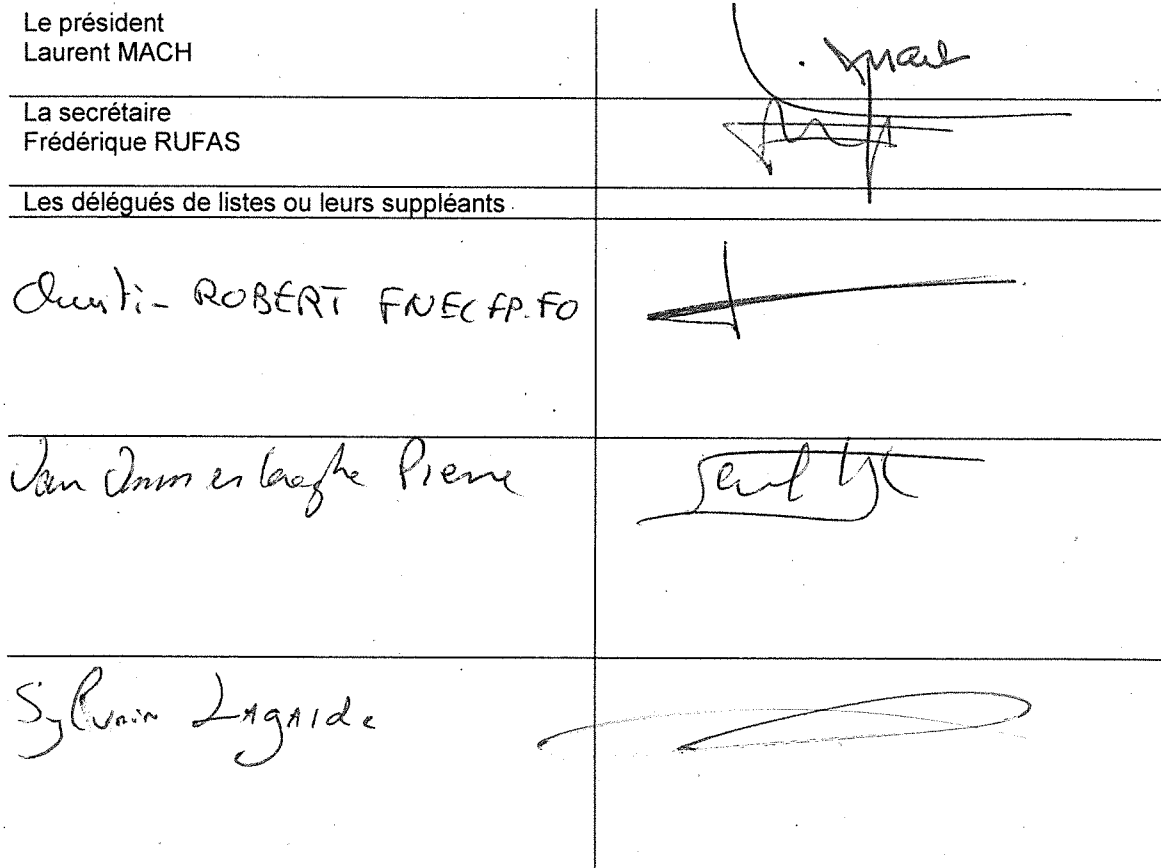 Le président
Laurent MACH
La secrétaire
Frédérique RUFAS
Les délégués de listes ou leurs suppléants
ROBERT FNEC FP.FO
Van Pierre
Sylvain Lagarde